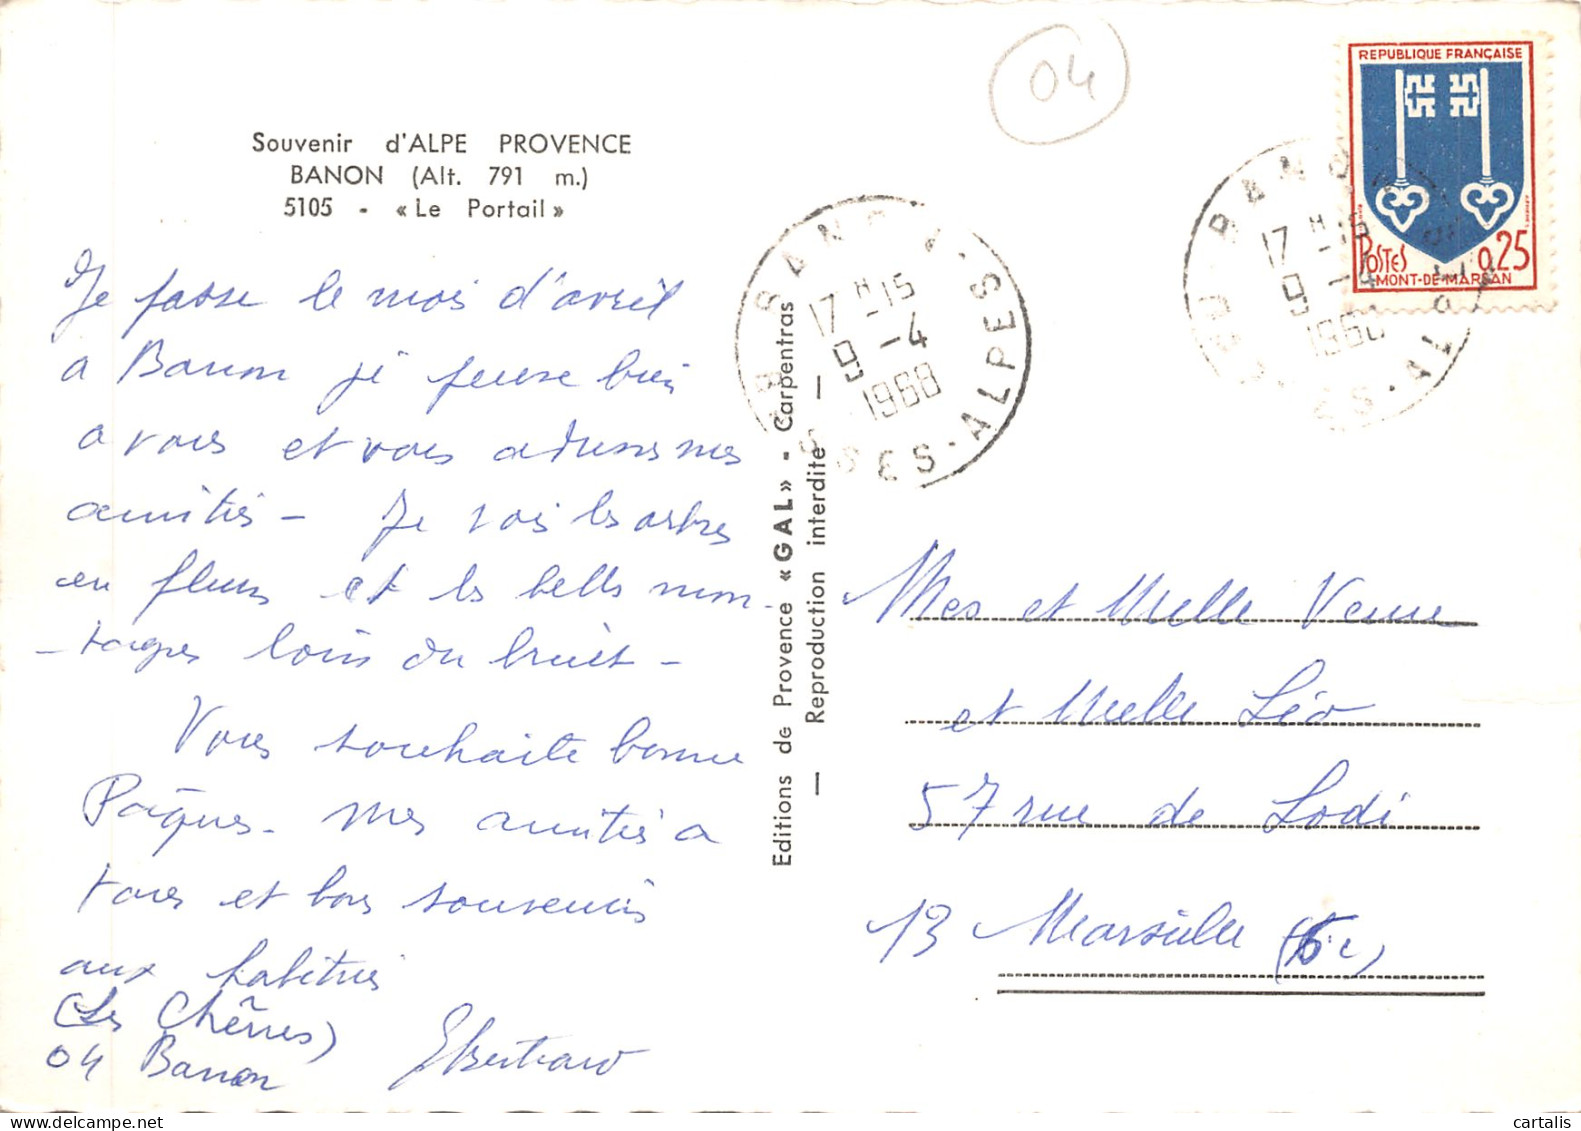 04
REPUBLIQUE FRANÇAISE
POSTES 0,25
MONT-DE-MARSAN
Souvenir d'ALPE PROVENCE
BANON (Alt. 791 m.)
5105 - « Le Portail »
BANON
17 H -15
9 -4
1968
BSES-ALPES
BANON
17 H -15
9 -4
1968
BSES-ALPES
Je passe le mois d'avril
a Banon je pense bien
a vous et vous adresse mes
amitiés - Je vois les arbres
en fleurs et les belles mon-
-tagnes loin du bruit -
Vous souhaite bonne
Pâques - Mes amitiés a
tous et bons souvenirs
aux habitués
(Les Chênes)
04 Banon
EBertrand
Editions de Provence «GAL» - Carpentras
— Reproduction interdite —
Mes et Melle
et Melle Léo
57 rue de Lodi
13 Marseille (6e)
cartalis